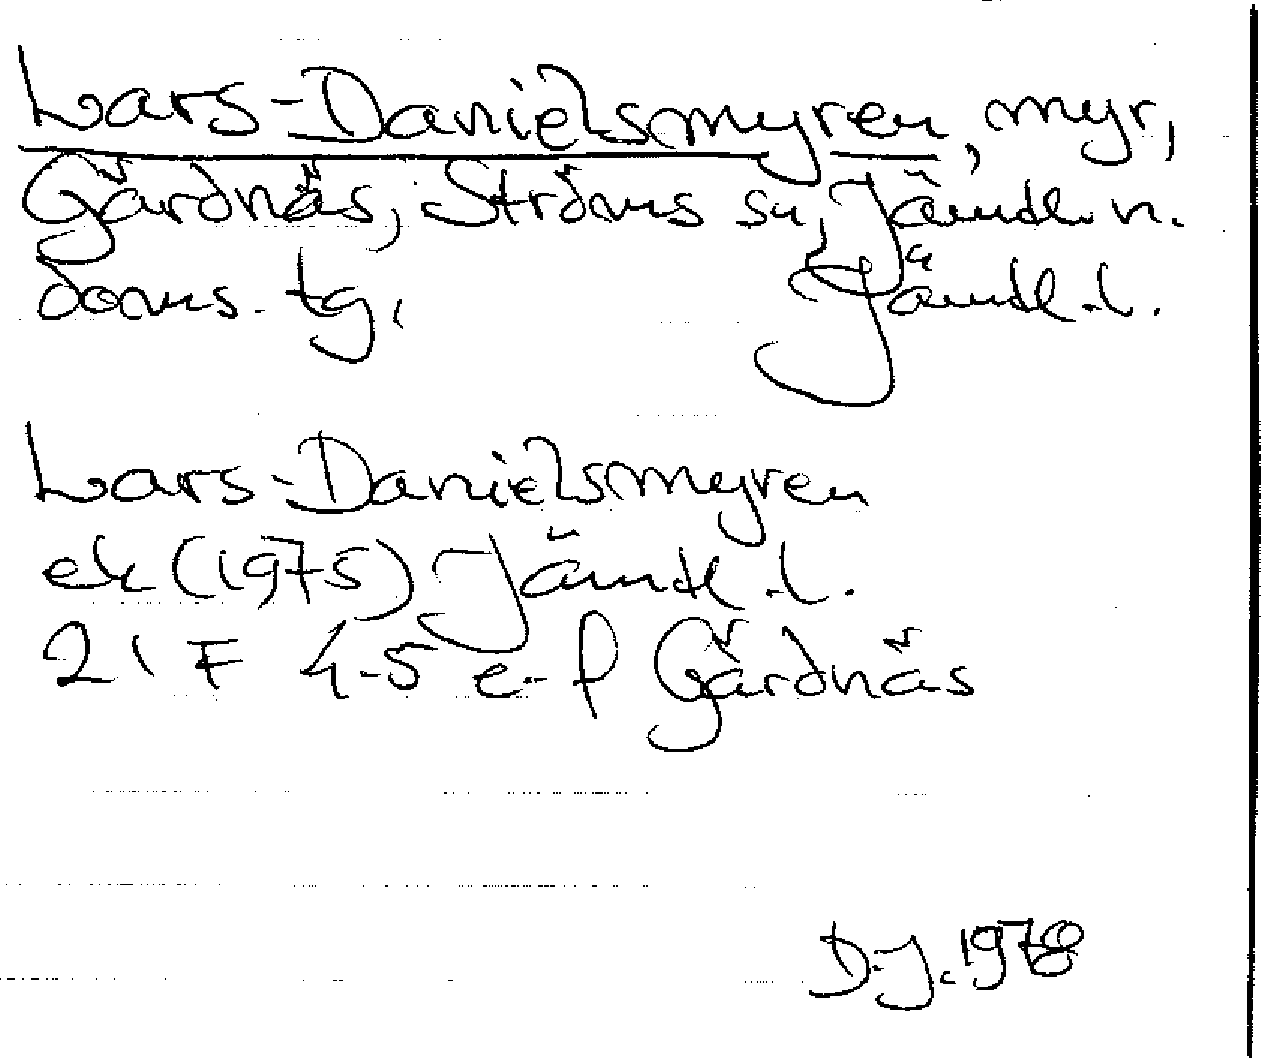 Lars-Danielsmyren, myr,
Gärdnäs, Ströms sn, Jämtl. n.
doms. tg,                     Jämtl. l.
Lars-Danielsmyren
ek (1975) Jämtl. l.
21 F 4-5 e-f Gärdnäs
D.J. 1978